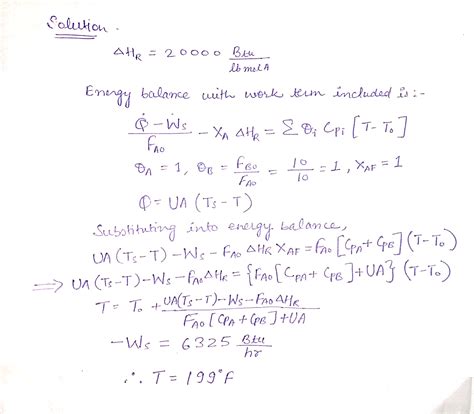 Solution -
ΔH_R = 20000 Btu / lb mol A
Energy balance with work term included is :-
(Q̇ - Ẇs) / F_A0 - X_A ΔH_R = Σ θi Cpi [T - T0]
θ_A = 1, θ_B = F_B0 / F_A0 = 10 / 10 = 1, X_AF = 1
Q̇ = UA (Ts - T)
Substituting into energy balance,
UA (Ts - T) - Ws - F_A0 ΔH_R X_AF = F_A0 [C_PA + C_PB] (T - T0)
⟹ UA (Ts - T) - Ws - F_A0 ΔH_R = {F_A0 [C_PA + C_PB] + UA} (T - T0)
T = T0 + (UA(Ts - T) - Ws - F_A0 ΔH_R) / (F_A0 [C_PA + C_PB] + UA)
-Ws = 6325 Btu / hr
∴ T = 199°F